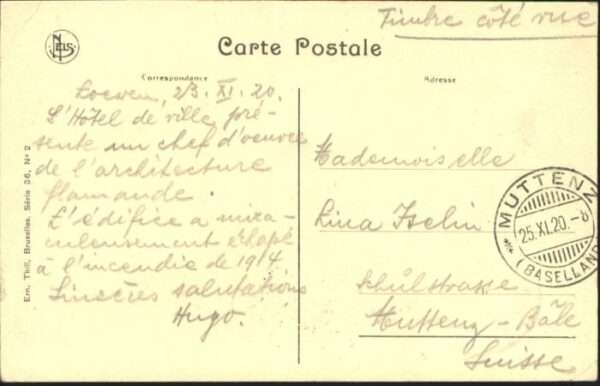 Timbre côté vue
NELS
Carte Postale
Correspondance
Adresse
Loewen, 23. XI. 20.
L'Hôtel de ville pré-
sente un chef d'oeuvre
de l'architecture
flamande.
L'édifice a mira-
culeusement échapé
à l'incendie de 1914
Sincères salutations
Hugo.
Mademoiselle
Lina Iselin
Schulstrasse
Muttenz - Bâle
Suisse
MUTTENZ
25.XI.20.-8
(BASELLAND)
Ern. Thill, Bruxelles. Série 36, No 2